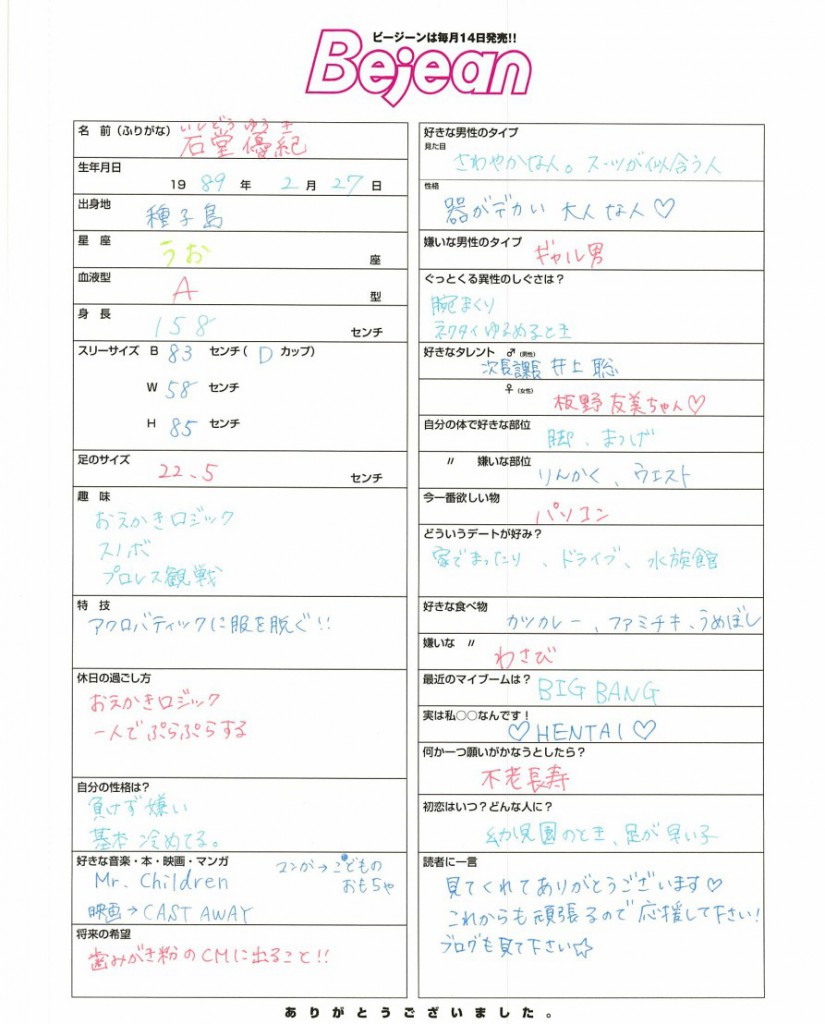 ビージーンは毎月14日発売!!
Bejean
名 前(ふりがな) いしどう ゆうき
石堂 優紀
生年月日
19 89 年 2 月 27 日
出身地
種子島
星 座
うお 座
血液型
A 型
身 長
158 センチ
スリーサイズ B 83 センチ( D カップ)
W 58 センチ
H 85 センチ
足のサイズ
22.5 センチ
趣 味
おえかきロジック
スノボ
プロレス観戦
特 技
アクロバティックに服を脱ぐ!!
休日の過ごし方
おえかきロジック
一人でぷらぷらする
自分の性格は?
負けず嫌い
基本 冷めてる。
好きな音楽・本・映画・マンガ
Mr. Children
マンガ→こどもの
おもちゃ
映画→CAST AWAY
将来の希望
歯みがき粉のCMに出ること!!
好きな男性のタイプ
見た目
さわやかな人。スーツが似合う人
性格
器がデカい 大人な人♡
嫌いな男性のタイプ
ギャル男
ぐっとくる異性のしぐさは?
腕まくり
ネクタイゆるめるとき
好きなタレント ♂(男性)
次長課長 井上 聡
♀(女性)
板野 友美ちゃん♡
自分の体で好きな部位
脚、まつげ
〃 嫌いな部位
りんかく、ウエスト
今一番欲しい物
パソコン
どういうデートが好み?
家でまったり、ドライブ、水族館
好きな食べ物
カツカレー、ファミチキ、うめぼし
嫌いな 〃
わさび
最近のマイブームは?
BIG BANG
実は私○○なんです!
♡HENTAI♡
何か一つ願いがかなうとしたら?
不老長寿
初恋はいつ?どんな人に?
幼児園のとき、足が早い子
読者に一言
見てくれてありがとうございます♡
これからも頑張るので応援して下さい!
ブログも見て下さい☆
ありがとうございました。